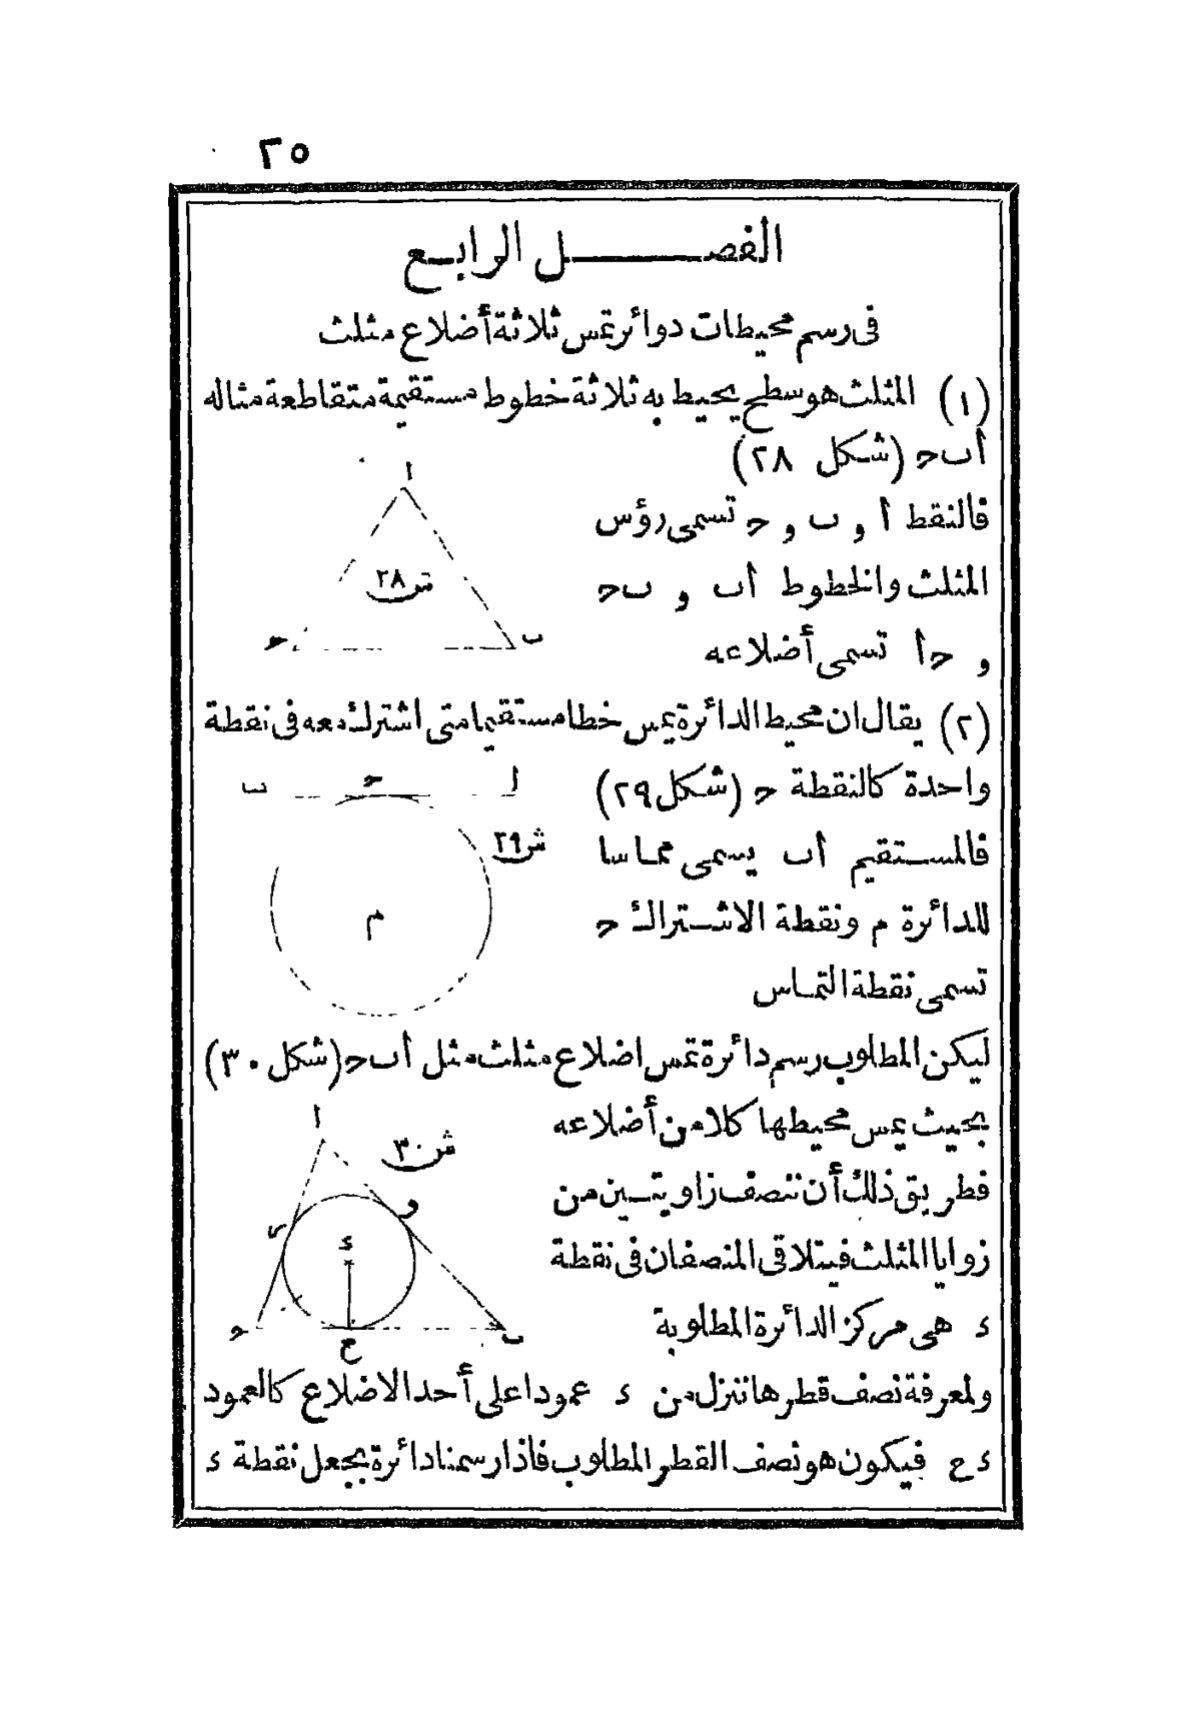 ٢٥
الفصل الرابع
فى رسم محيطات دوائر تمس ثلاثة أضلاع مثلث
(١) المثلث هو سطح يحيط به ثلاثة خطوط مستقيمة متقاطعة مثاله
أ ب ح (شكل ٢٨)
ا
فالنقط أ و ب و ح تسمى رؤس
ش ٢٨
المثلث والخطوط أ ب و ب ح
ب
ح
و ح أ تسمى أضلاعه
(٢) يقال ان محيط الدائرة يمس خطا مستقيما متى اشترك معه فى نقطة
واحدة كالنقطة ح (شكل ٢٩)
ا ح ب
ش ٢٩
فالمستقيم أ ب يسمى مماسا
للدائرة م ونقطة الاشتراك ح
م
تسمى نقطة التماس
ليكن المطلوب رسم دائرة تمس اضلاع مثلث مثل أ ب ح (شكل ٣٠)
بحيث يمس محيطها كلا من أضلاعه
ا
ش ٣٠
فطريق ذلك أن تنصف زاويتين من
و
ر
زوايا المثلث فيتلاقى المنصفان فى نقطة
ء
ء هى مركز الدائرة المطلوبة
ب
ح
ع
ولمعرفة نصف قطرها ننزل من ء عمودا على أحد الاضلاع كالعمود
ء ع فيكون هو نصف القطر المطلوب فاذا رسمنا دائرة بجعل نقطة ء